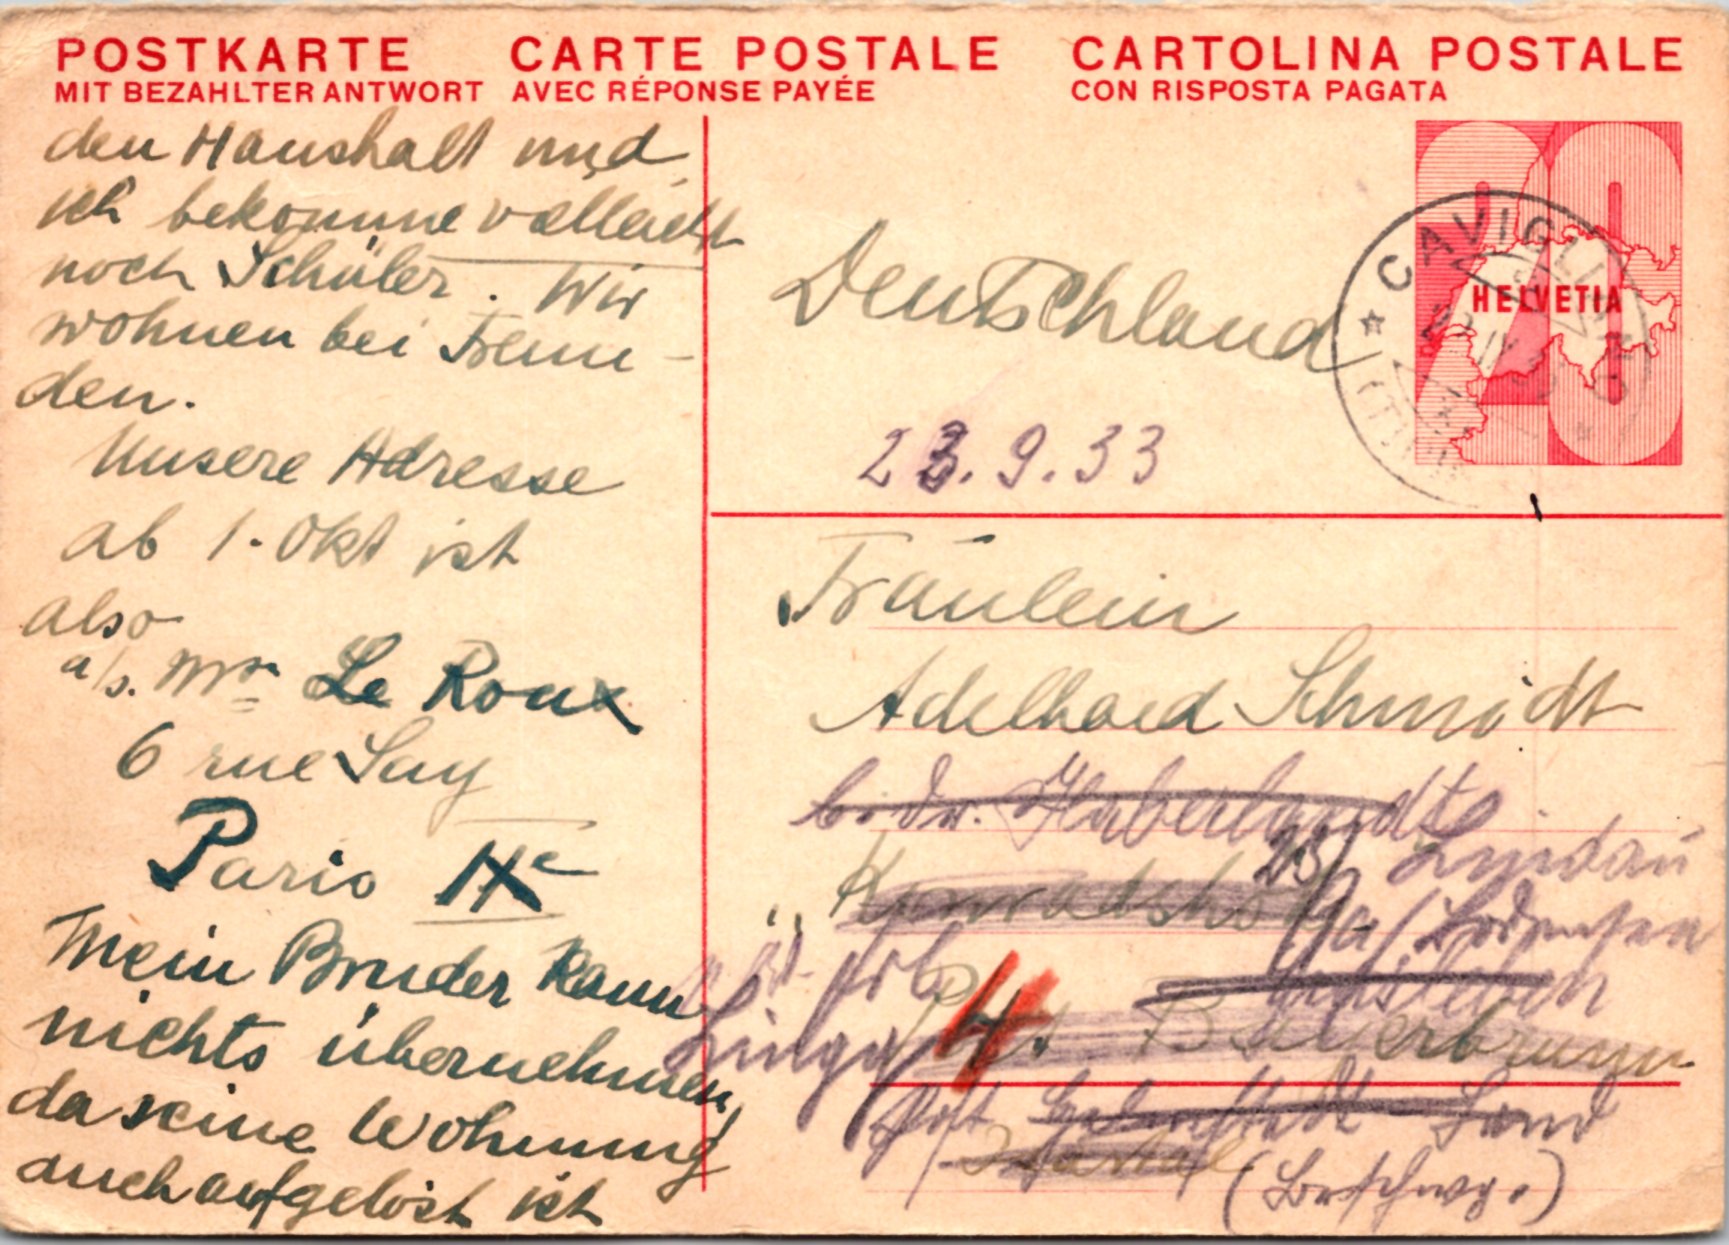 POSTKARTE CARTE POSTALE CARTOLINA POSTALE
MIT BEZAHLTER ANTWORT AVEC RÉPONSE PAYÉE CON RISPOSTA PAGATA
den Haushalt und
ich bekomme vielleicht
noch Schüler. Wir
wohnen bei Freun-
den.
Unsere Adresse
ab 1. Okt ist
also
a/s. Mme Le Roux
6 rue Say
Paris IXe
Mein Bruder kann
nichts übernehmen,
da seine Wohnung
auch aufgelöst ist
HELVETIA
20
CAVIGLIANO
Deutschland
23.9.33
Fräulein
Adelhaid Schmidt
b. Dr. Haberlandt
Lindau
a/Bodensee
4
Post
Land